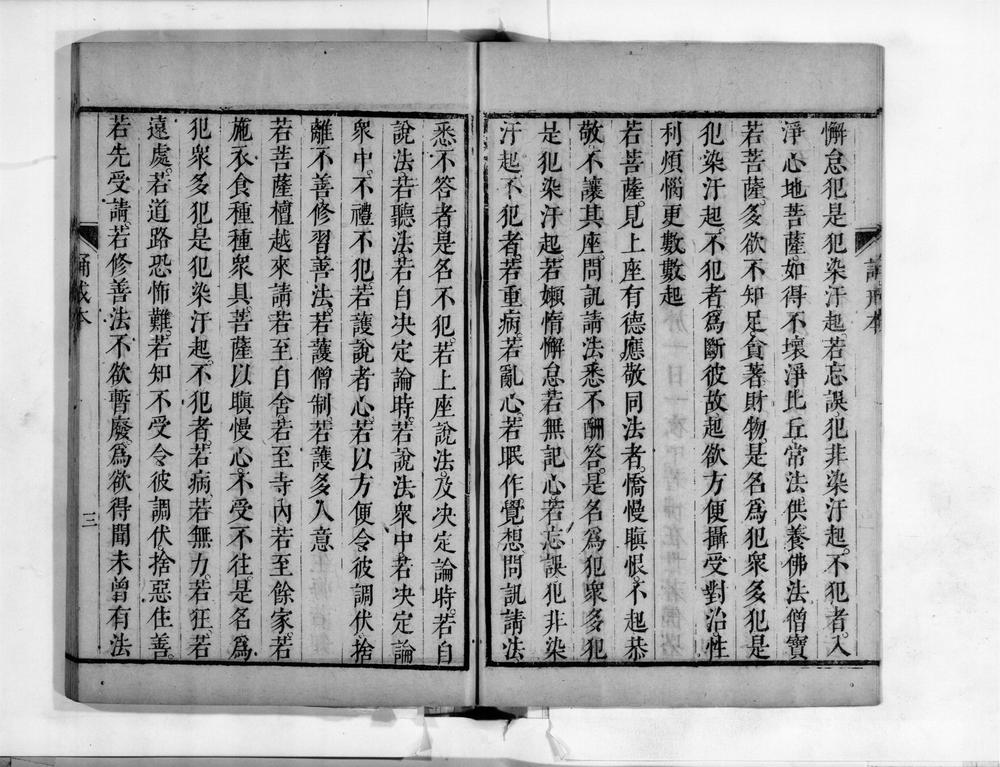 懈怠犯是犯染汙起若忘誤犯非染汙起不犯者入
淨心地菩薩如得不壞淨比丘常法供養佛法僧寶
若菩薩多欲不知足貪著財物是名為犯眾多犯是
犯染汙起不犯者為斷彼故起欲方便攝受對治性
利煩惱更數數起
若菩薩見上座有德應敬同法者憍慢瞋恨不起恭
敬不讓其座問訊請法悉不酬答是名為犯眾多犯
是犯染汙起若嬾惰懈怠若無記心若忘誤犯非染
汙起不犯者若重病若亂心若眠作覺想問訊請法
悉不答者是名不犯若上座說法及决定論時若自
說法若聽法若自决定論時若說法眾中若决定論
眾中不禮不犯若護說者心若以方便令彼調伏捨
離不善修習善法若護僧制若護多人意
若菩薩檀越來請若至自舍若至寺內若至餘家若
施衣食種種眾具菩薩以瞋慢心不受不往是名為
犯眾多犯是犯染汙起不犯者若病若無力若狂若
遠處若道路恐怖難若知不受令彼調伏捨惡住善
若先受請若修善法不欲暫廢為欲得聞未曾有法
誦戒本
三